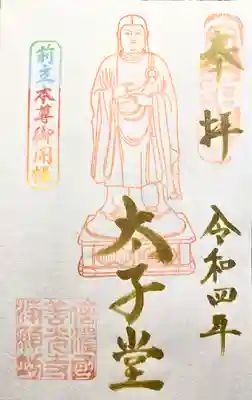 奉拝
令和四年
太子堂
前立本尊御開帳
信濃國
善光寺